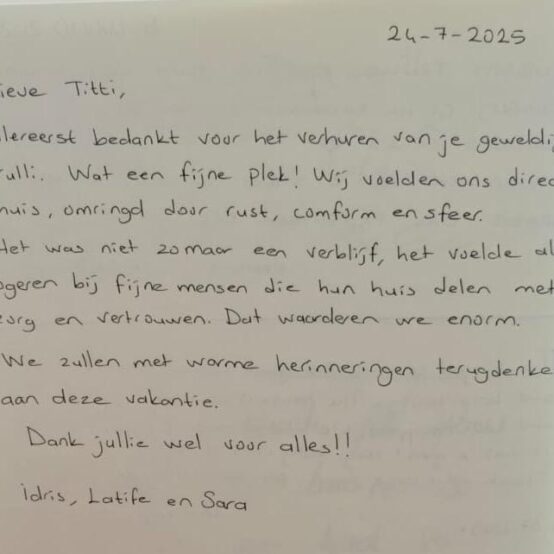 24-7-2025
ieve Titti,
llereerst bedankt voor het verhuren van je geweldij
rulli. Wat een fijne plek! Wij voelden ons direc
huis, omringd door rust, comform en sfeer.
Het was niet zomaar een verblijf, het voelde al
ogeren bij fijne mensen die hun huis delen met
zorg en vertrouwen. Dat waarderen we enorm.
We zullen met warme herinneringen terugdenke
aan deze vakantie.
Dank jullie wel voor alles!!
idris, Latife en Sara